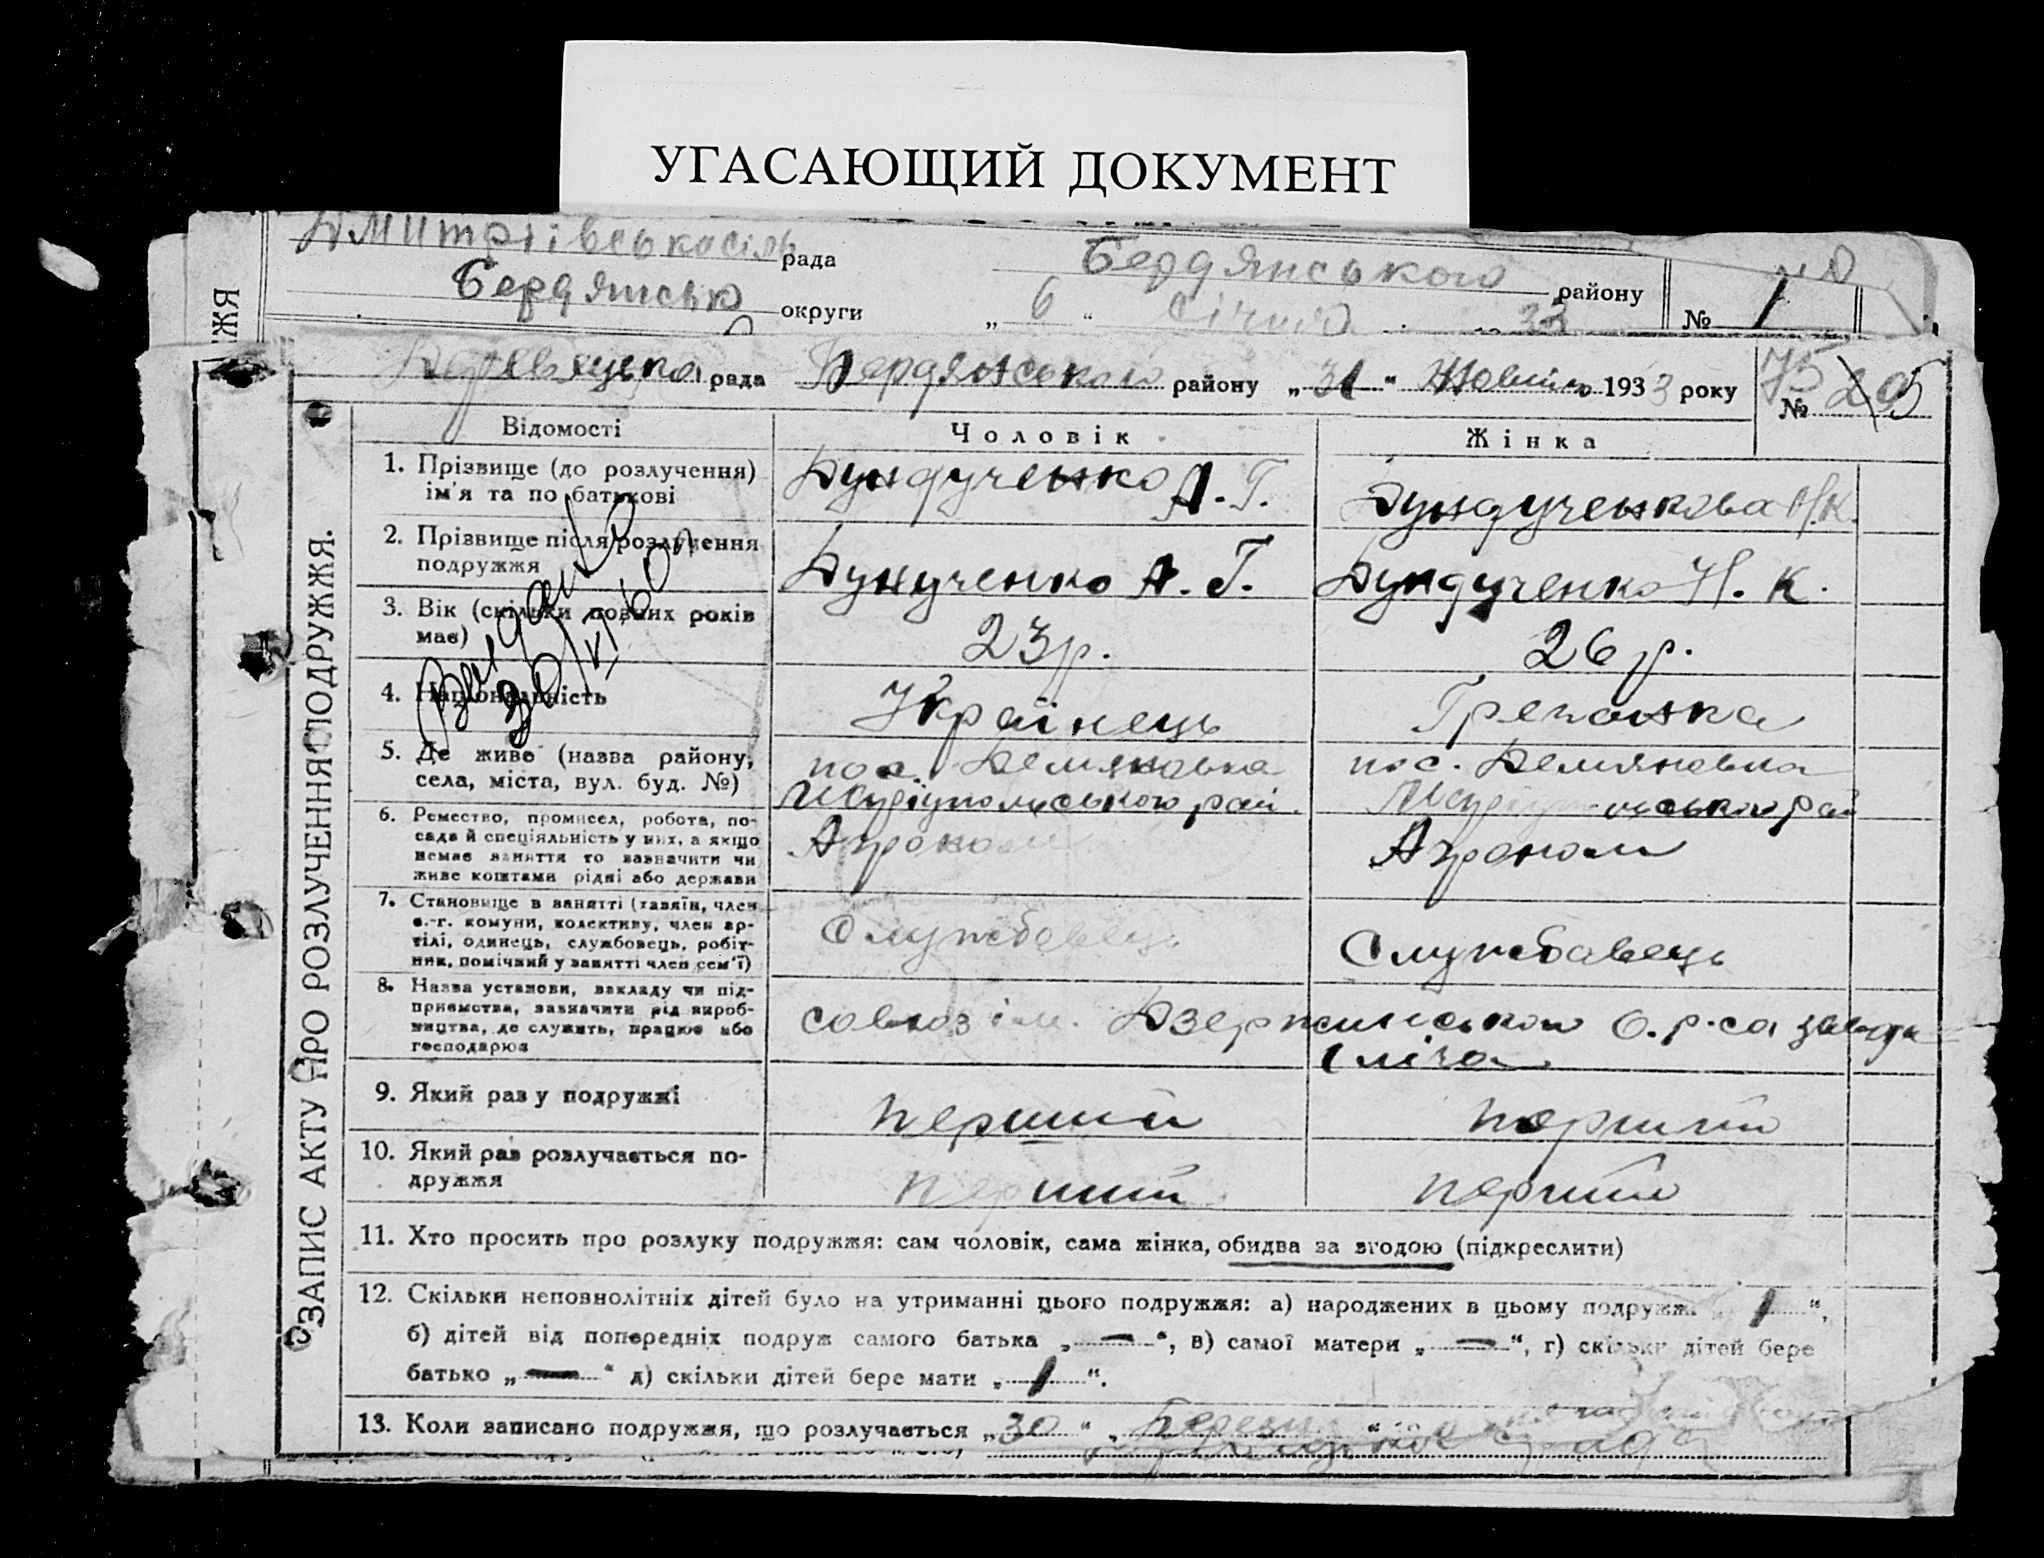 УГАСАЮЩИЙ ДОКУМЕНТ
Дмитрівська сіль рада Бердянського району №
Бердянськ округи „ 6 “ Січня 33
ЖЖЯ
рада Бердянського району „ 31 “ Жовтня 1933 року № 75 205
ЗАПИС АКТУ ПРО РОЗЛУЧЕННЯ ПОДРУЖЖЯ.
Відомості Чоловік Жінка
1. Прізвище (до розлучення) ім'я та по батькові
Дундученко А. Г.
Дундученкова Н. К.
2. Прізвище після розлучення подружжя
Дунученко А. Г.
Дундученко Н. К.
3. Вік (скільки повних років має)
23 р.
26 р.
4. Національність
Українець
Гречанка
5. Де живе (назва району, села, міста, вул. буд. №)
пос. Демяновка
Маріупольського рай.
пос. Демяновка
6. Ремество, промисел, робота, по-
сада й спеціяльність у них, а якщо
немає заняття то зазначити чи
живе коштами рідні або держави
Агроном
Агроном
7. Становище в занятті (хазяїн, член
с.-г. комуни, колективу, член ар-
тілі, одинець, службовець, робіт-
ник, помічний у занятті член сем'ї)
Службавець
Службавець
8. Назва установи, закладу чи під-
приємства, зазначити рід вироб-
ництва, де служить, працює або
господарює
совхоз ім. Дзержинського О.р.са завода
Іліча
9. Який раз у подружжі
перший
перший
10. Який раз розлучається по-
дружжя
перший
перший
30/VI 60
11. Хто просить про розлуку подружжя: сам чоловік, сама жінка, обидва за згодою (підкреслити)
12. Скільки неповнолітніх дітей було на утриманні цього подружжя: а) народжених в цьому подружж. „ 1 “,
б) дітей від попередніх подруж самого батька „ — “, в) самої матери „ — “, г) скільки дітей бере
батько „ — “ д) скільки дітей бере мати „ 1 “.
13. Коли записано подружжя, що розлучається „ 30 “ „ Березня